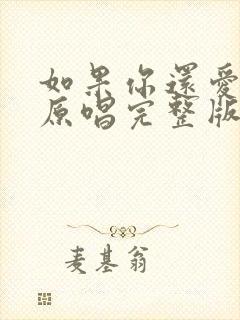 如果你還愛
原唱完整版
麦基翁